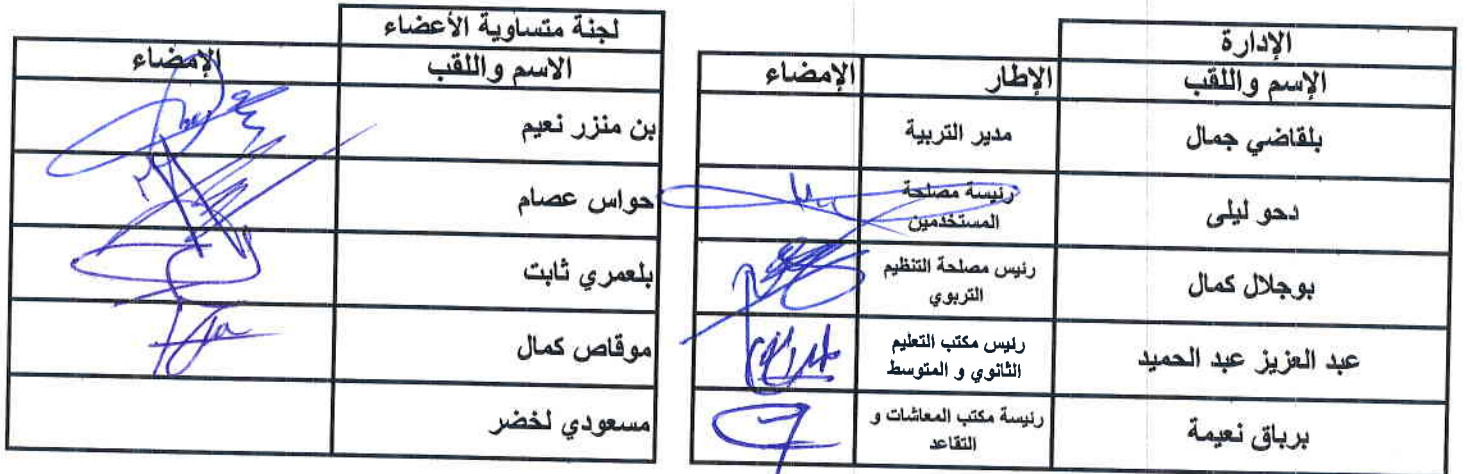 الإدارة
الإسم واللقب الإطار الإمضاء
بلقاضي جمال مدير التربية
دحو ليلى رئيسة مصلحة
المستخدمين
بوجلال كمال رئيس مصلحة التنظيم
التربوي
عبد العزيز عبد الحميد رئيس مكتب التعليم
الثانوي و المتوسط
برباق نعيمة رئيسة مكتب المعاشات و
التقاعد
لجنة متساوية الأعضاء
الاسم واللقب الإمضاء
بن منزر نعيم
حواس عصام
بلعمري ثابت
موقاص كمال
مسعودي لخضر